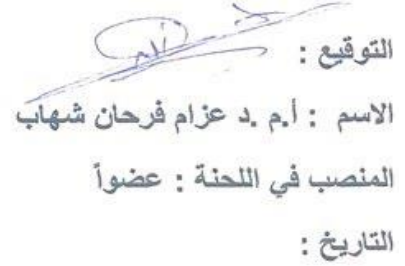 التوقيع :
الاسم : أ.م .د عزام فرحان شهاب
المنصب في اللحنة : عضواً
التاريخ :